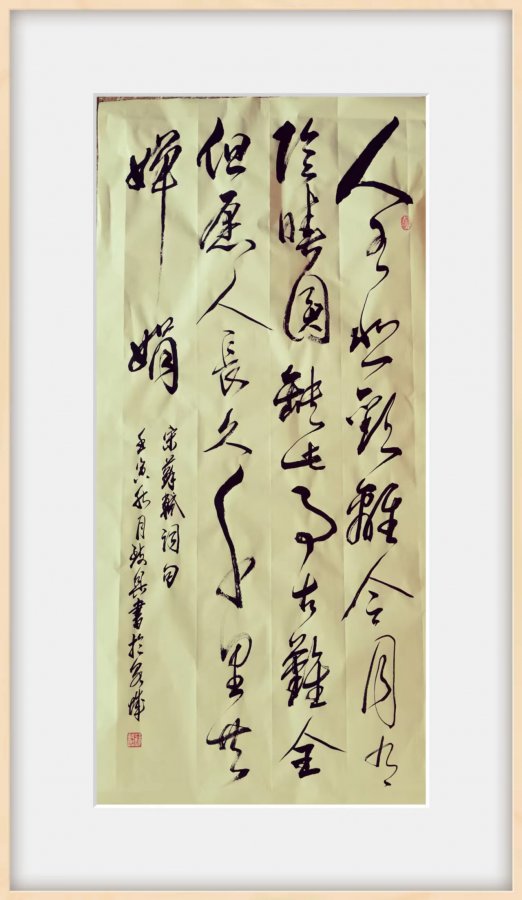 人有悲歡離合月有
陰晴圓缺此事古難全
但愿人長久千里共
嬋娟
宋蘇軾詞句
壬寅秋月書於城